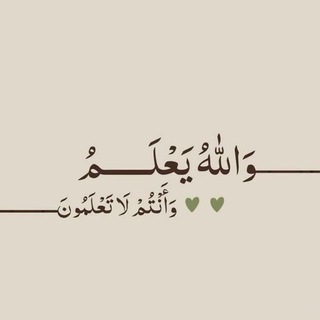 وَاللَّهُ يَعْلَمُ
وَأَنْتُمْ لَا تَعْلَمُونَ